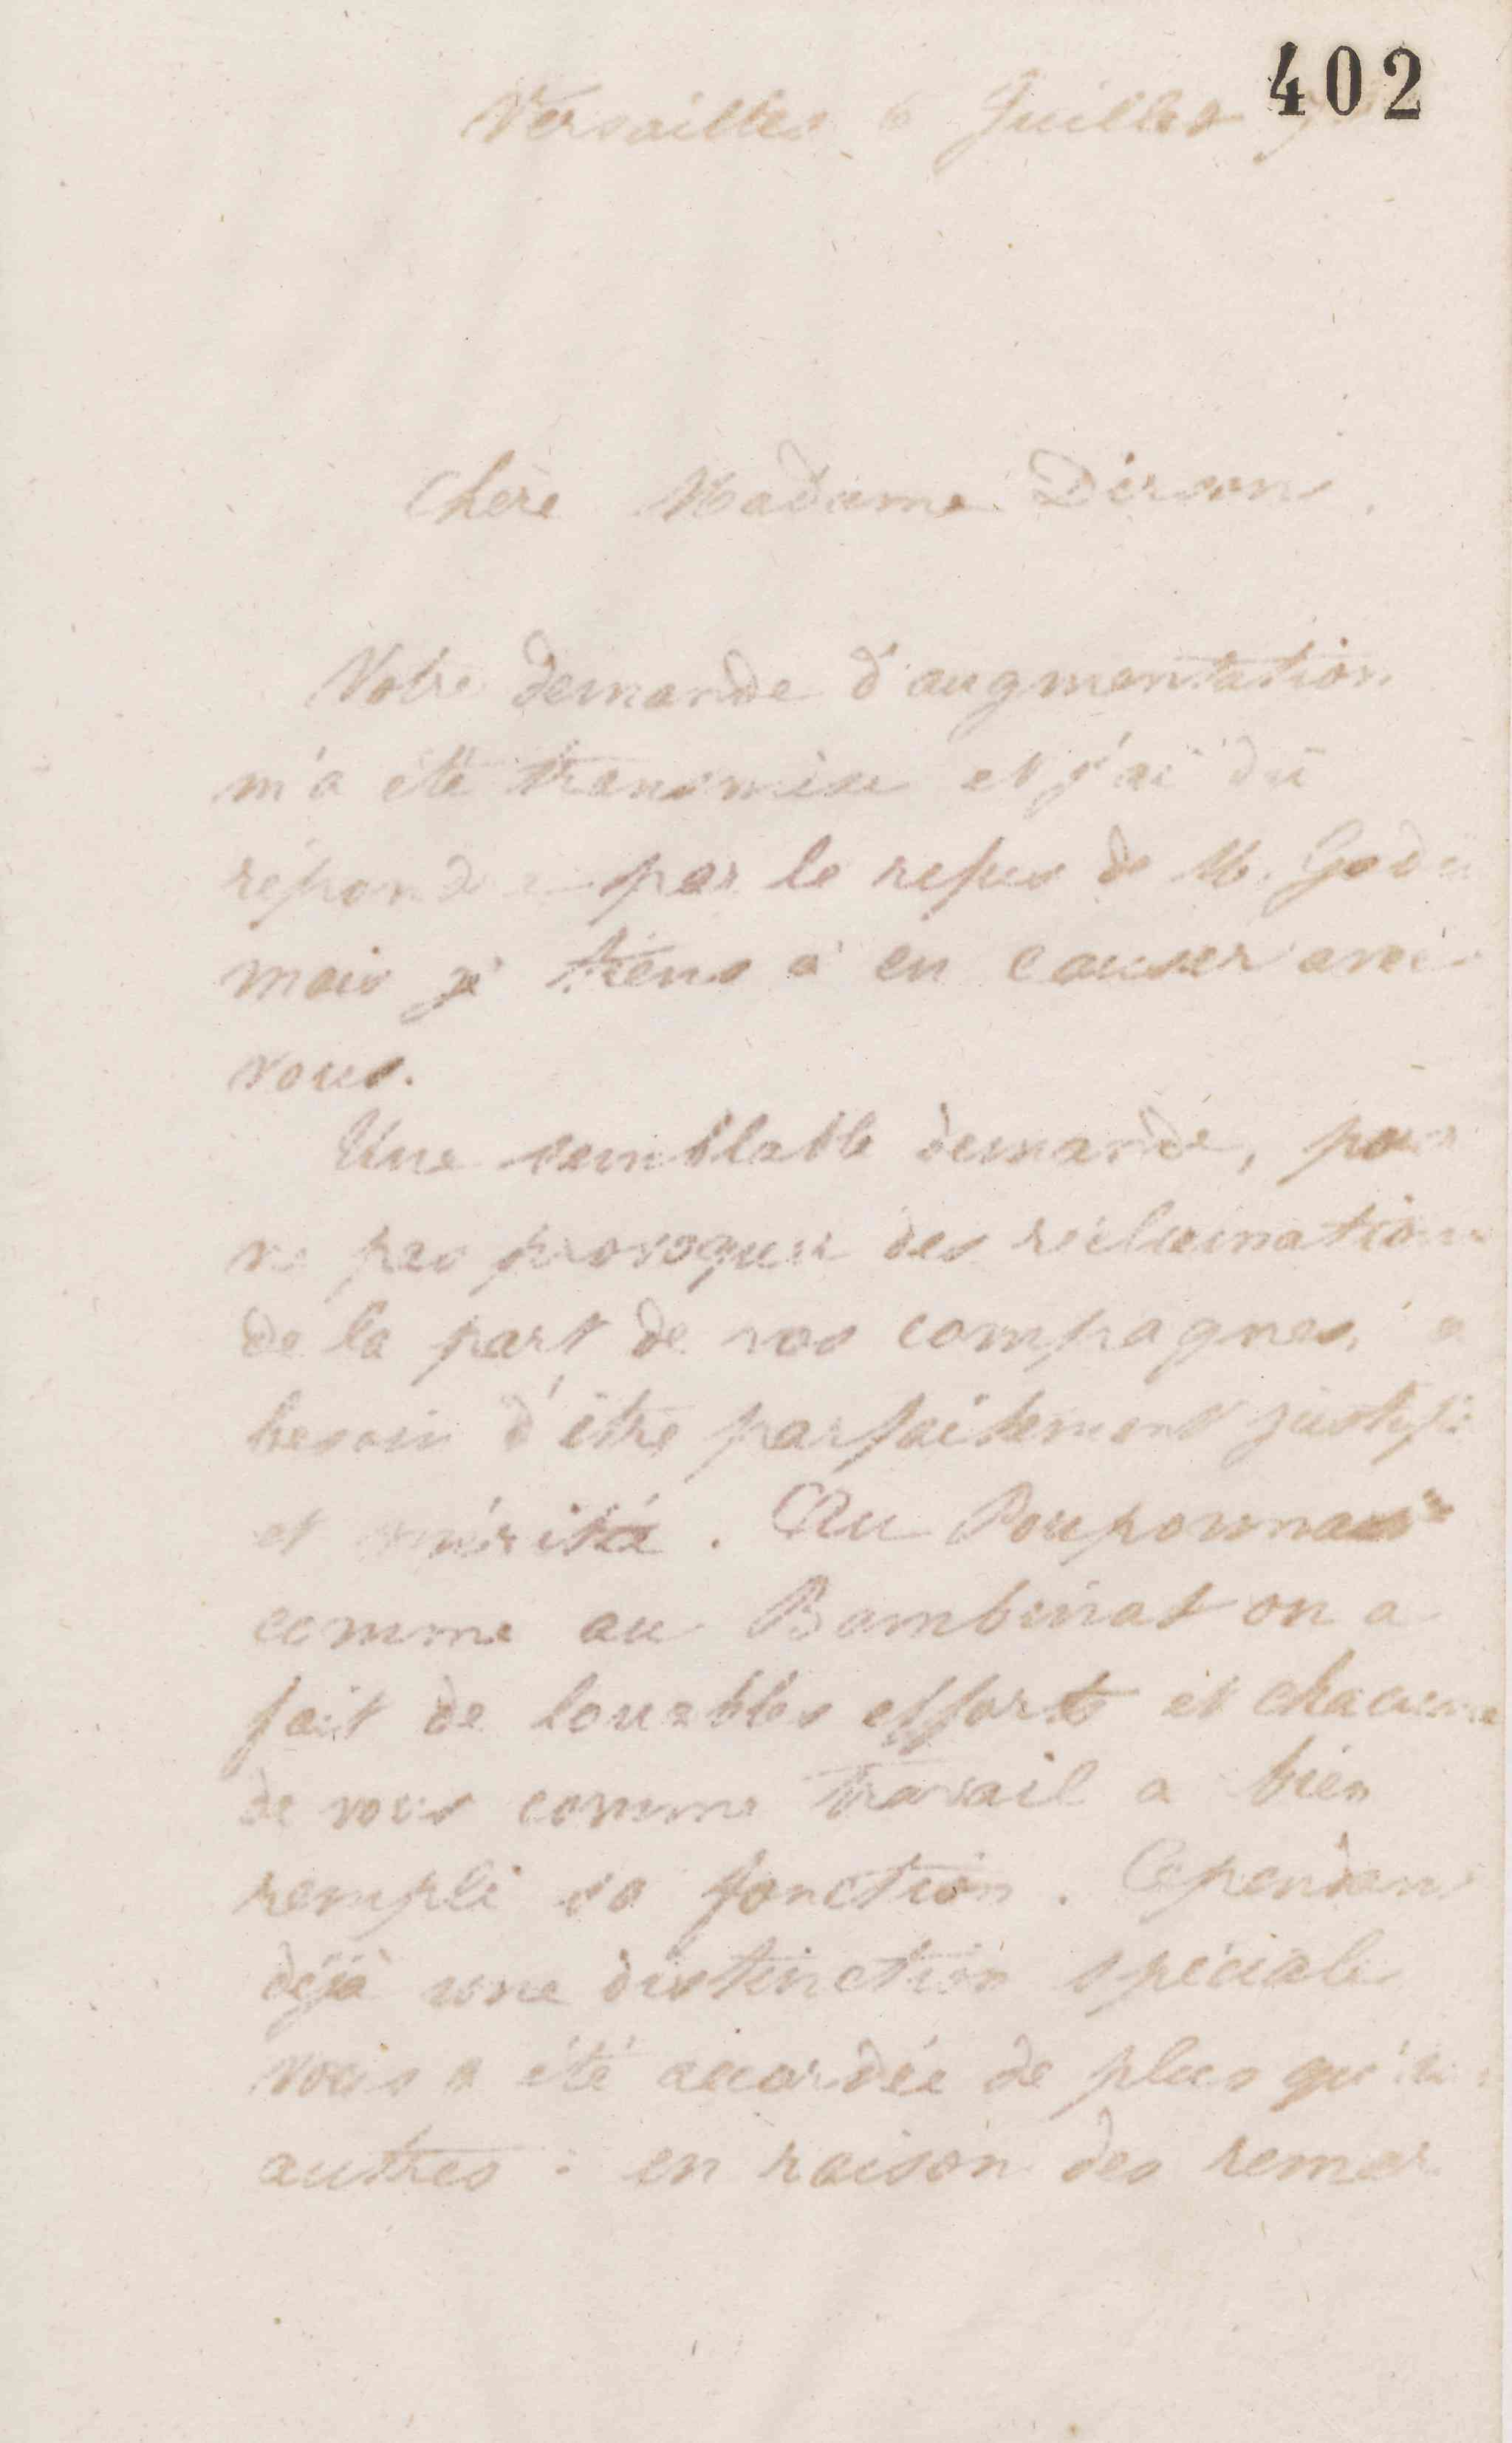 402
Versailles 6 Juillet
Chère Madame Dirson,
Votre demande d'augmentation
m'a été transmise et j'ai dû
répondre par le refus de M. Godin
mais je tiens à en causer avec
vous.
Une semblable demande, pour
ne pas provoquer des réclamations
de la part de vos compagnes, a
besoin d'être parfaitement justifié
et mérité. Au Pouponnat
comme au Bambinat on a
fait de louables efforts et chacune
de vous comme travail a bien
rempli sa fonction. Cependant
déjà une distinction spéciale
vous a été accordée de plus
autres : en raison des remar